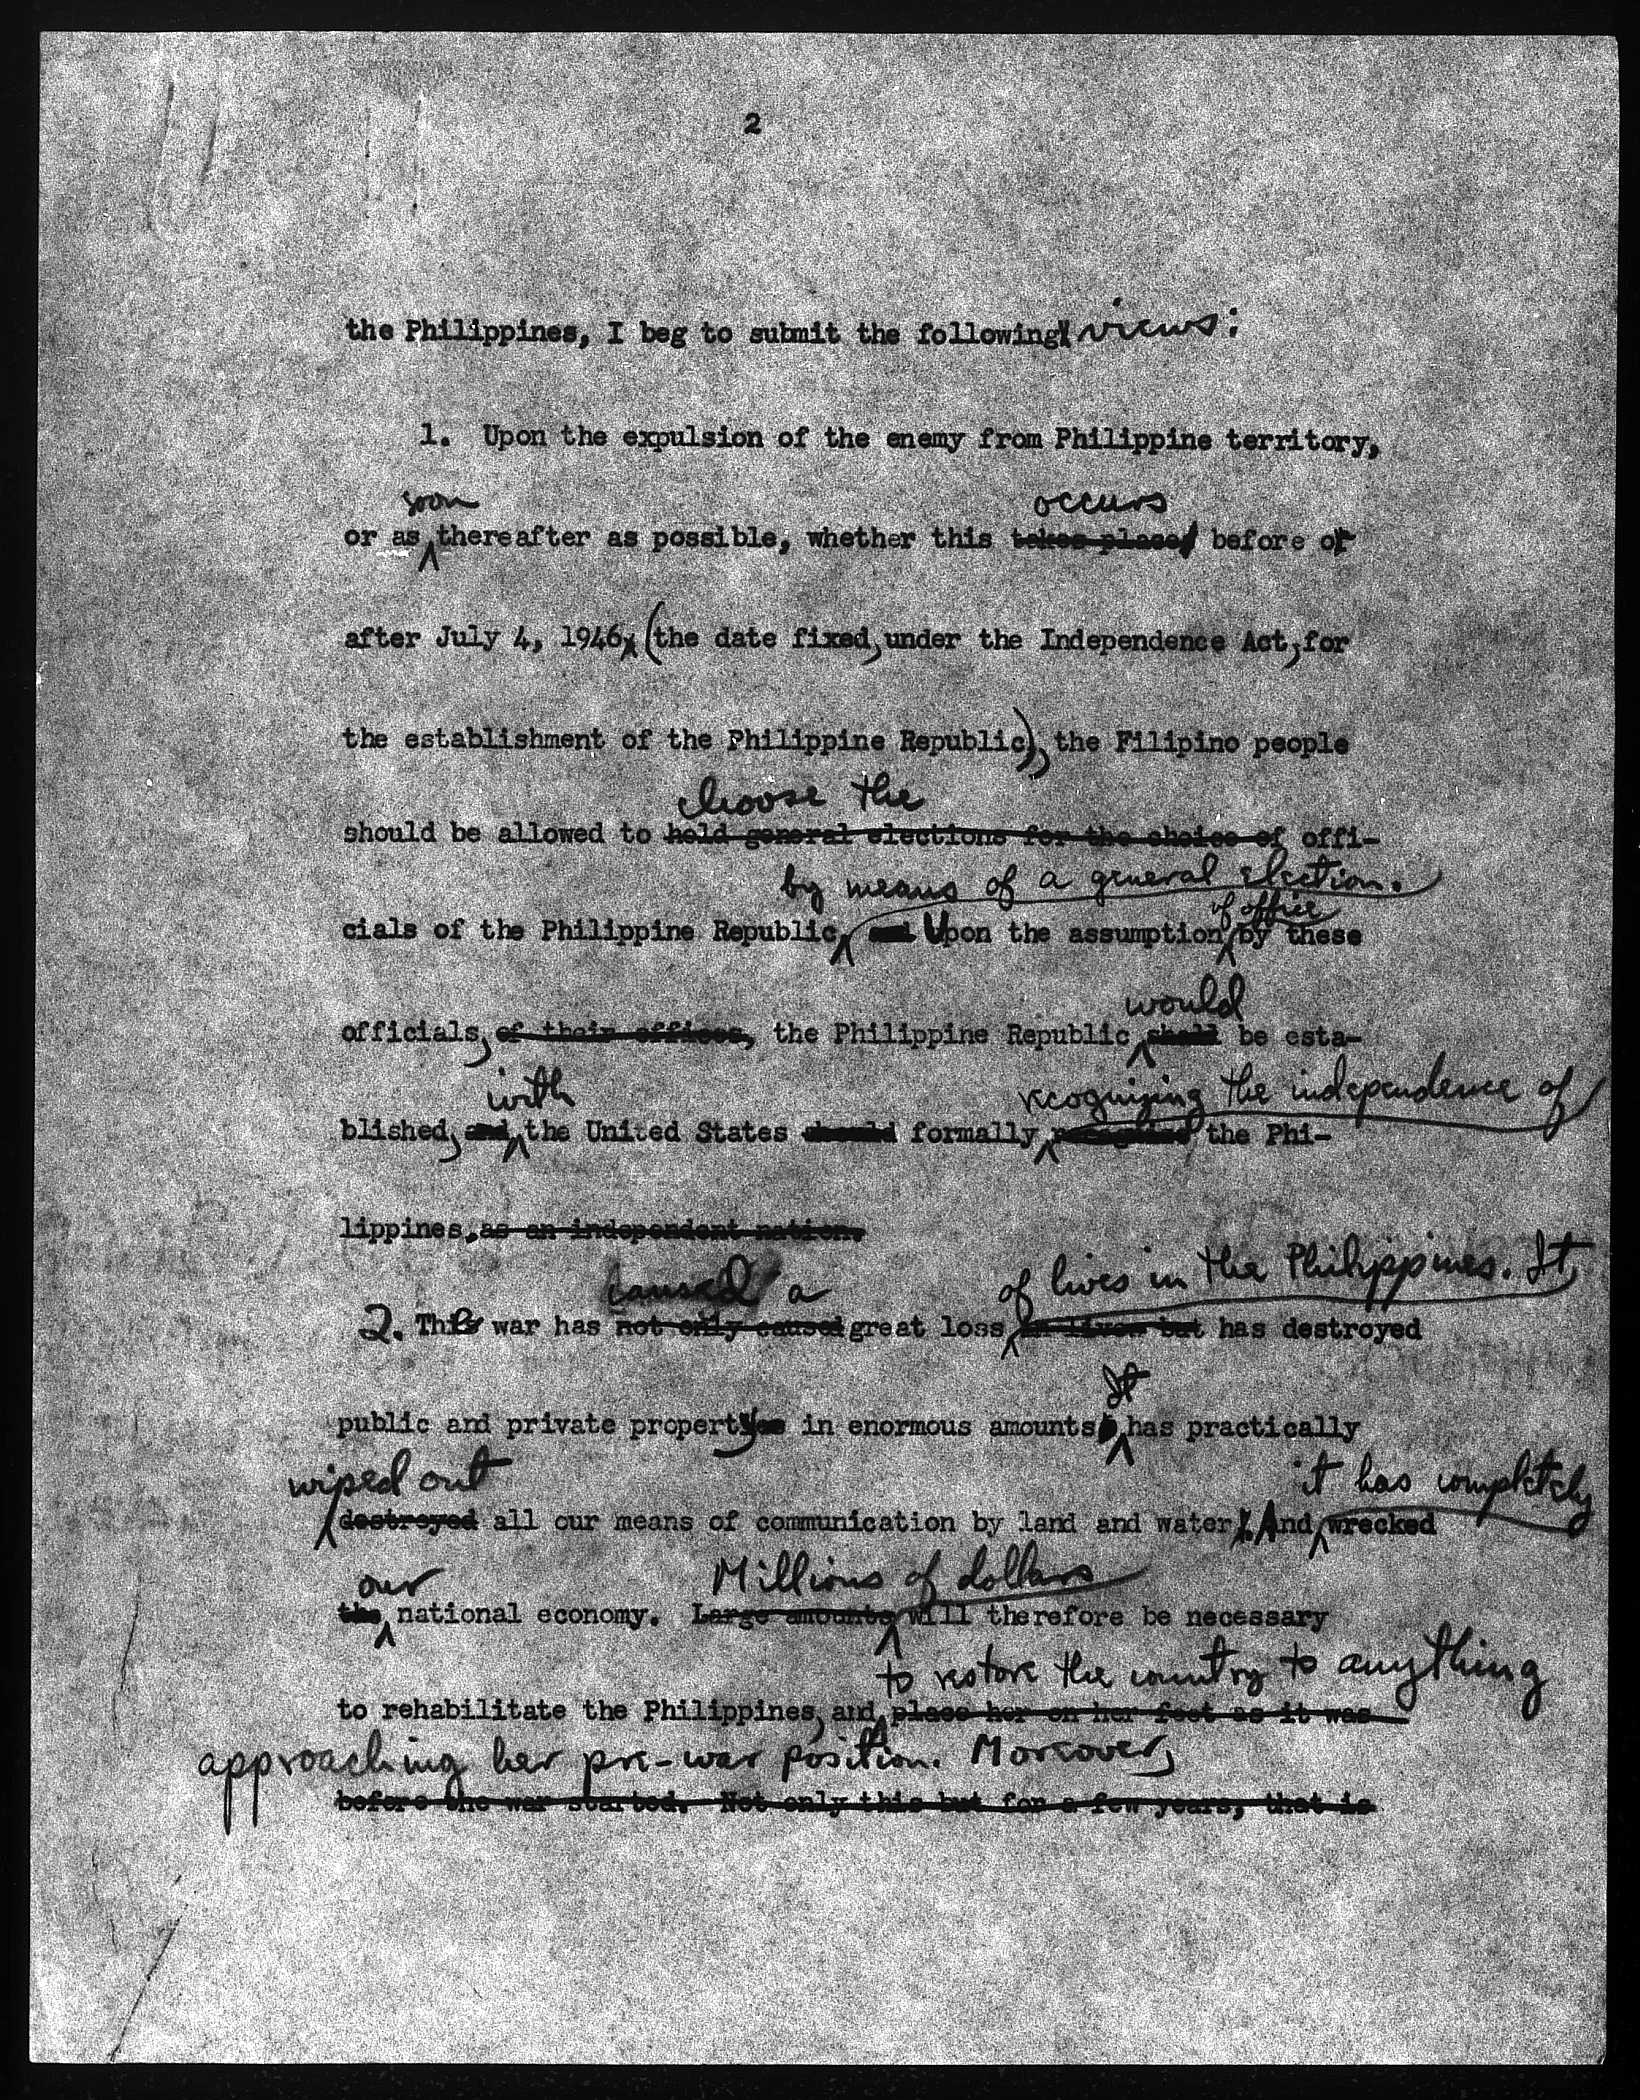 2
the Philippines, I beg to submit the following views:
1. Upon the expulsion of the enemy from Philippine territory,
soon occurs
or as thereafter as possible, whether this takes place, before or
after July 4, 1946 (the date fixed, under the Independence Act, for
the establishment of the Philippine Republic), the Filipino people
choose the
should be allowed to hold general elections for the choice of offi-
by means of a general election.
of office
cials of the Philippine Republic and Upon the assumption by these
would
officials, of their offices, the Philippine Republic shall be esta-
with recognizing the independence of
blished, and the United States should formally the Phi-
lippines. as an independent nation.
caused a of lives in the Philippines. It
2. The war has not only caused great loss in lives but has destroyed
It
public and private property in enormous amounts has practically
wiped out it has completely
destroyed all our means of communication by land and water. And wrecked
our Millions of dollars
the national economy. Large amounts will therefore be necessary
to restore the country to anything
to rehabilitate the Philippines, and place her on her feet as it was
approaching her pre-war position. Moreover,
before the war started. Not only this but for a few years, that is